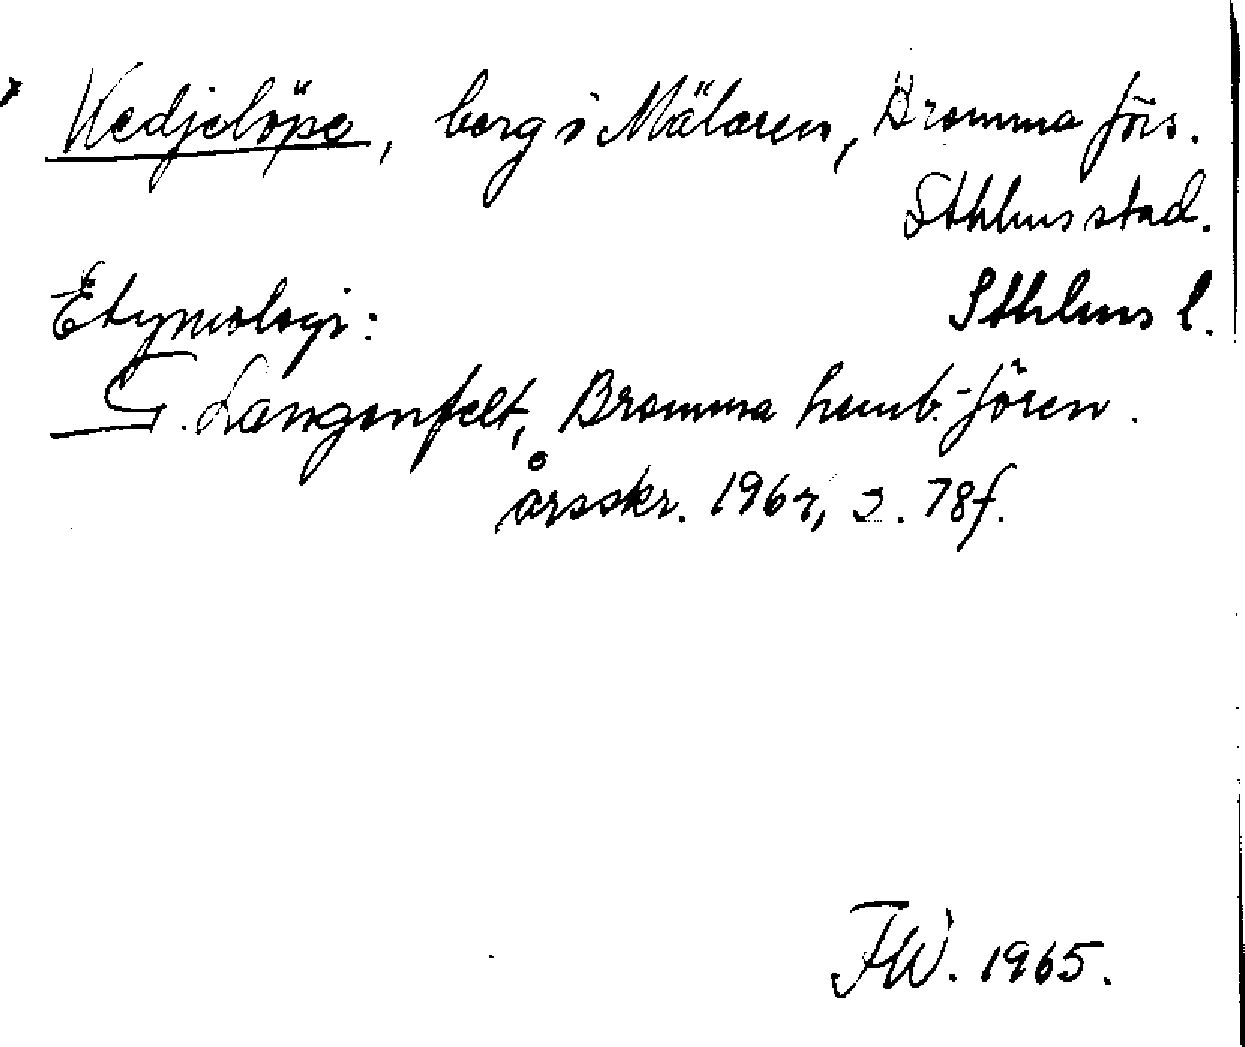 Kedjelöpe, borg i Mälaren, Bromma förs.
Sthlms stad.
Etymologi:
Sthlms l.
G. Langenfelt, Bromma hemb.-fören.
årsskr. 1964, s. 78f.
FW. 1965.